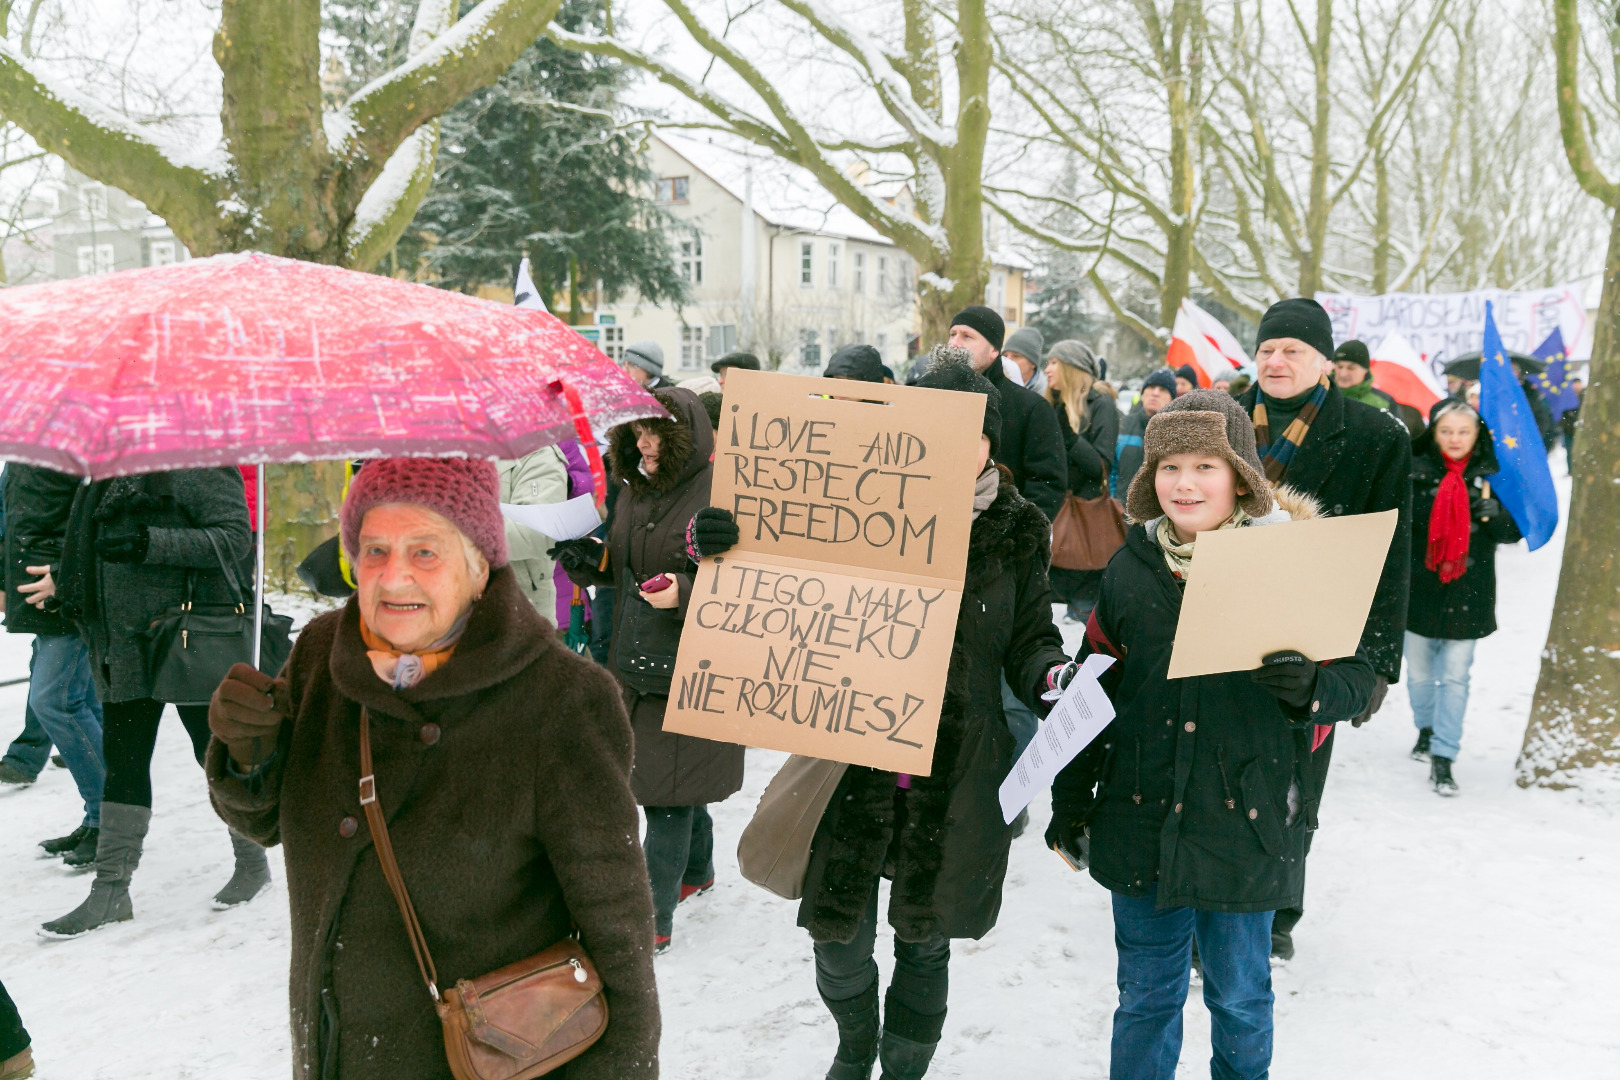 i LOVE AND
RESPECT
FREEDOM
i TEGO MAŁY
CZŁOWIEKU
NIE
NIE ROZUMIESZ
JAROSŁAWIE
KIPSTA